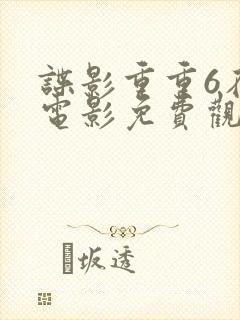 諜影重重6在
電影免費觀
坂透